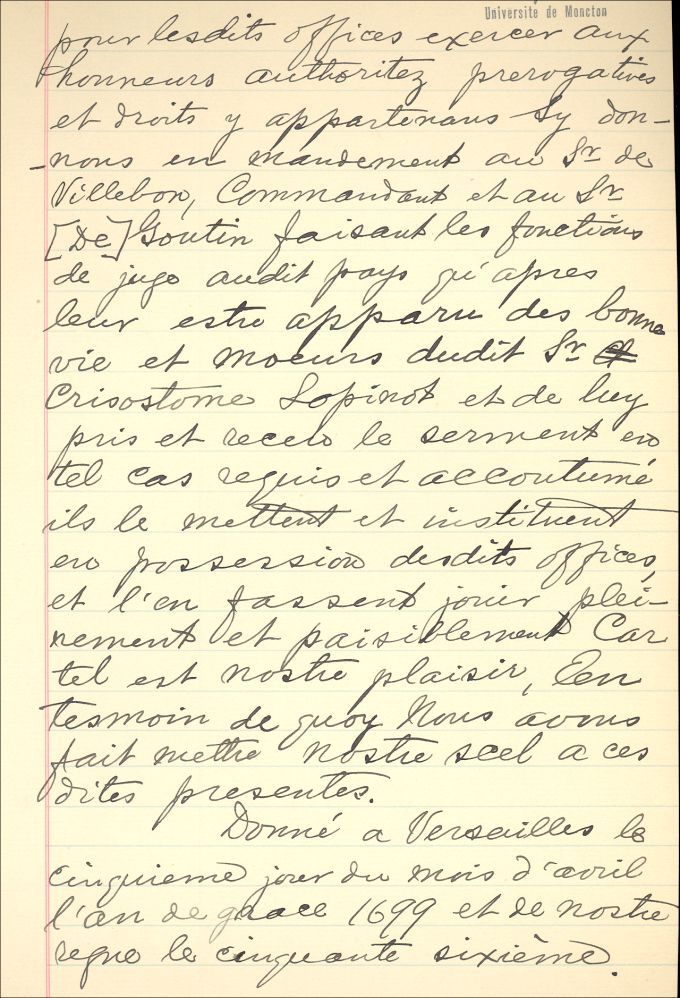 Université de Moncton
pour lesdits offices exercer aux
honneurs authoritez prerogatives
et droits y appartenans Sy don-
-nons en mandement au Sr de
Villebon, Commandant et au Sr
[De] Goutin faisant les fonctions
de juge audit pays qu'apres
leur estre apparu des bonne
vie et moeurs dudit Sr
Crisostome Lopinot et de luy
pris et receu le serment en
tel cas requis et accoutumé
ils le mettent et instituent
en possession desdits offices,
et l'en fassent jouir plei-
nement et paisiblement Car
tel est nostre plaisir, En
tesmoin de quoy Nous avons
fait mettre nostre scel a ces
dites presentes.
Donné a Versailles le
cinquieme jour du mois d'avril
l'an de grace 1699 et de nostre
regne le cinquante sixième.